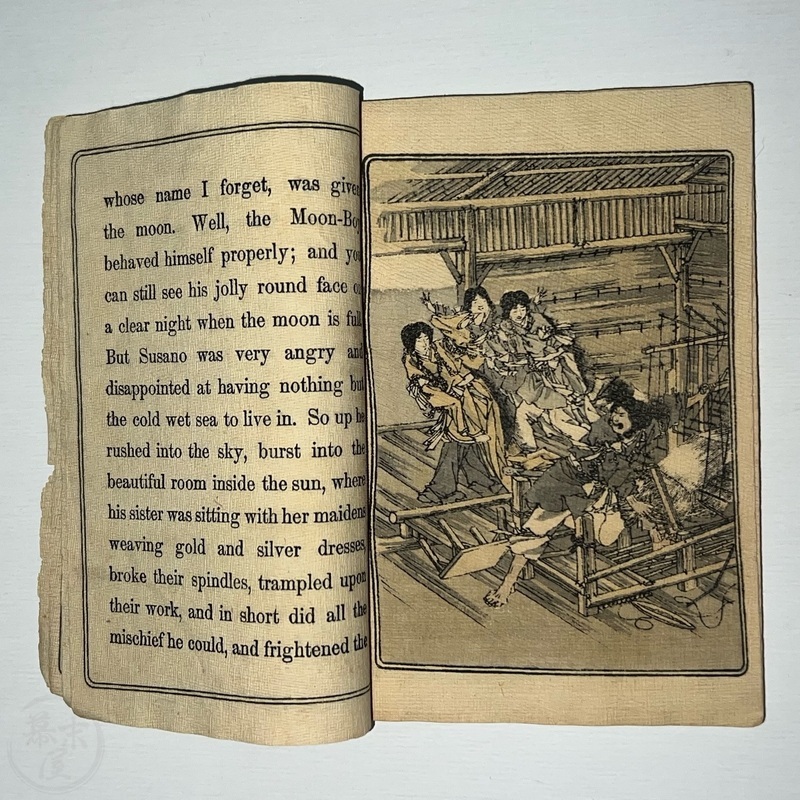 whose name I forget, was given
the moon. Well, the Moon-Boy
behaved himself properly; and you
can still see his jolly round face on
a clear night when the moon is full.
But Susano was very angry and
disappointed at having nothing but
the cold wet sea to live in. So up he
rushed into the sky, burst into the
beautiful room inside the sun, where
his sister was sitting with her maidens
weaving gold and silver dresses,
broke their spindles, trampled upon
their work, and in short did all the
mischief he could, and frightened the
幕末屋